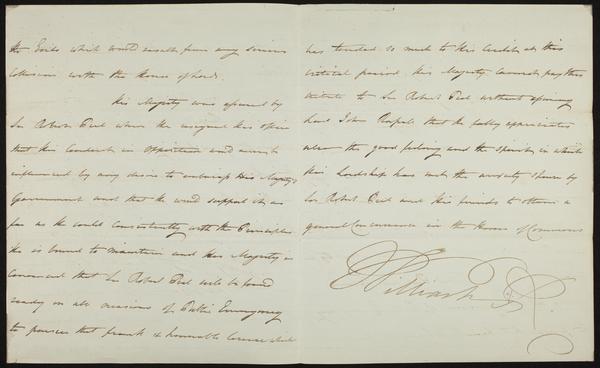 the Evils which would result from any serious
Collision with the House of Lords.
His Majesty was assured by
Sir Robert Peel when he resigned his office
that his Conduct in opposition would never be
influenced by any desire to embarrass His Majesty's
Government and that he would support it as
far as he could Consistently with the Principles
he is bound to maintain and His Majesty is
Convinced that Sir Robert Peel will be found
ready on all occasions of Public Emergency
to pursue that frank & honorable Course which
has tended so much to his Credit at this
critical period. His Majesty cannot pay this
tribute to Sir Robert Peel without assuring
Lord John Russell that he fully appreciates
also the good feeling and the spirit in which
his Lordship has met the anxiety shewn by
Sir Robert Peel and his friends to obtain a
general Concurrence in the House of Commons
William R